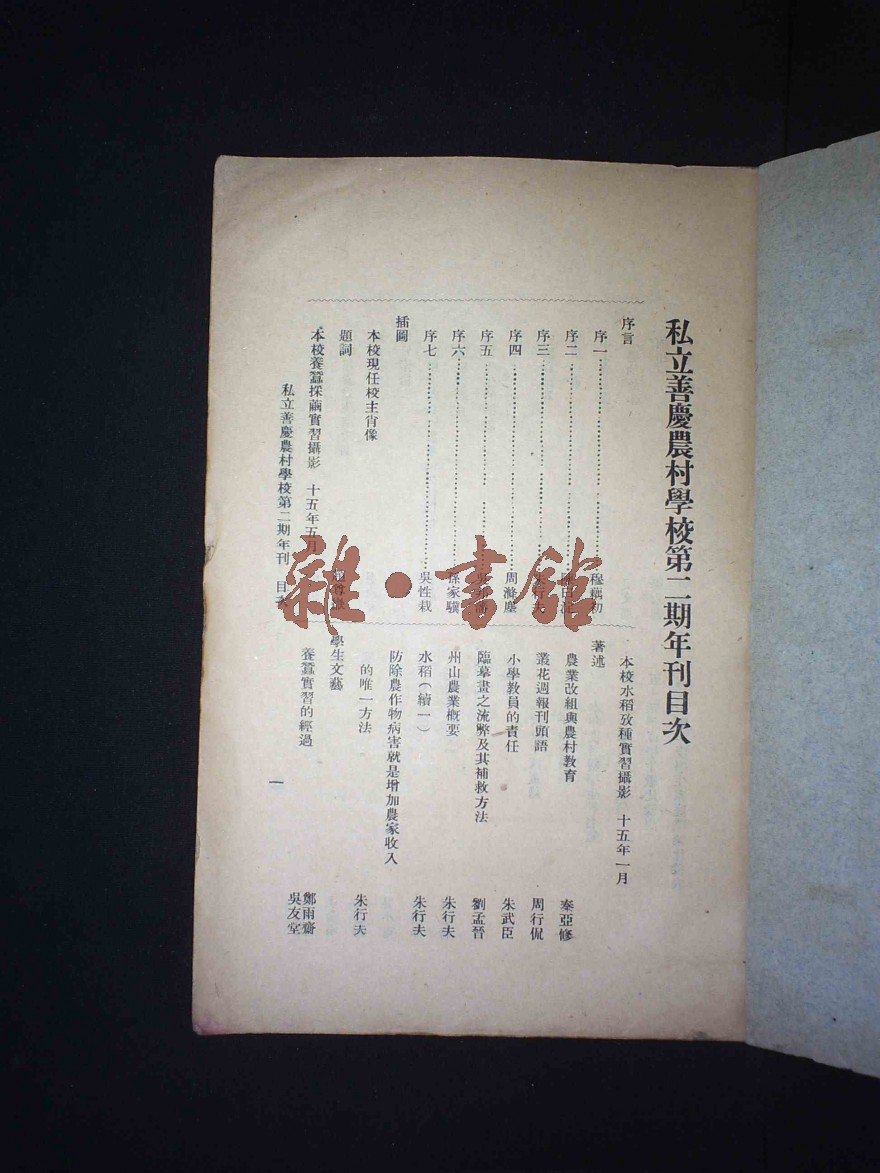 私立善慶農村學校第二期年刊目次
序言
序一 穆藕初
序二
序三 朱行夫
序四 周滌塵
序五
序六 孫家驥
序七 吳性栽
插圖
本校現任校主肖像
題詞
本校養蠶採繭實習攝影 十五年五月
本校水稻攷種實習攝影 十五年一月
著述
農業改組與農村教育 秦亞修
叢花週報刊頭語 周行侃
小學教員的責任 朱武臣
臨摹畫之流弊及其補救方法 劉孟晉
州山農業概要 朱行夫
水稻(續一) 朱行夫
防除農作物病害就是增加農家收入
的唯一方法 朱行夫
學生文藝
養蠶實習的經過 鄭雨齋 吳友堂
私立善慶農村學校第二期年刊 目次
一
雜·書館